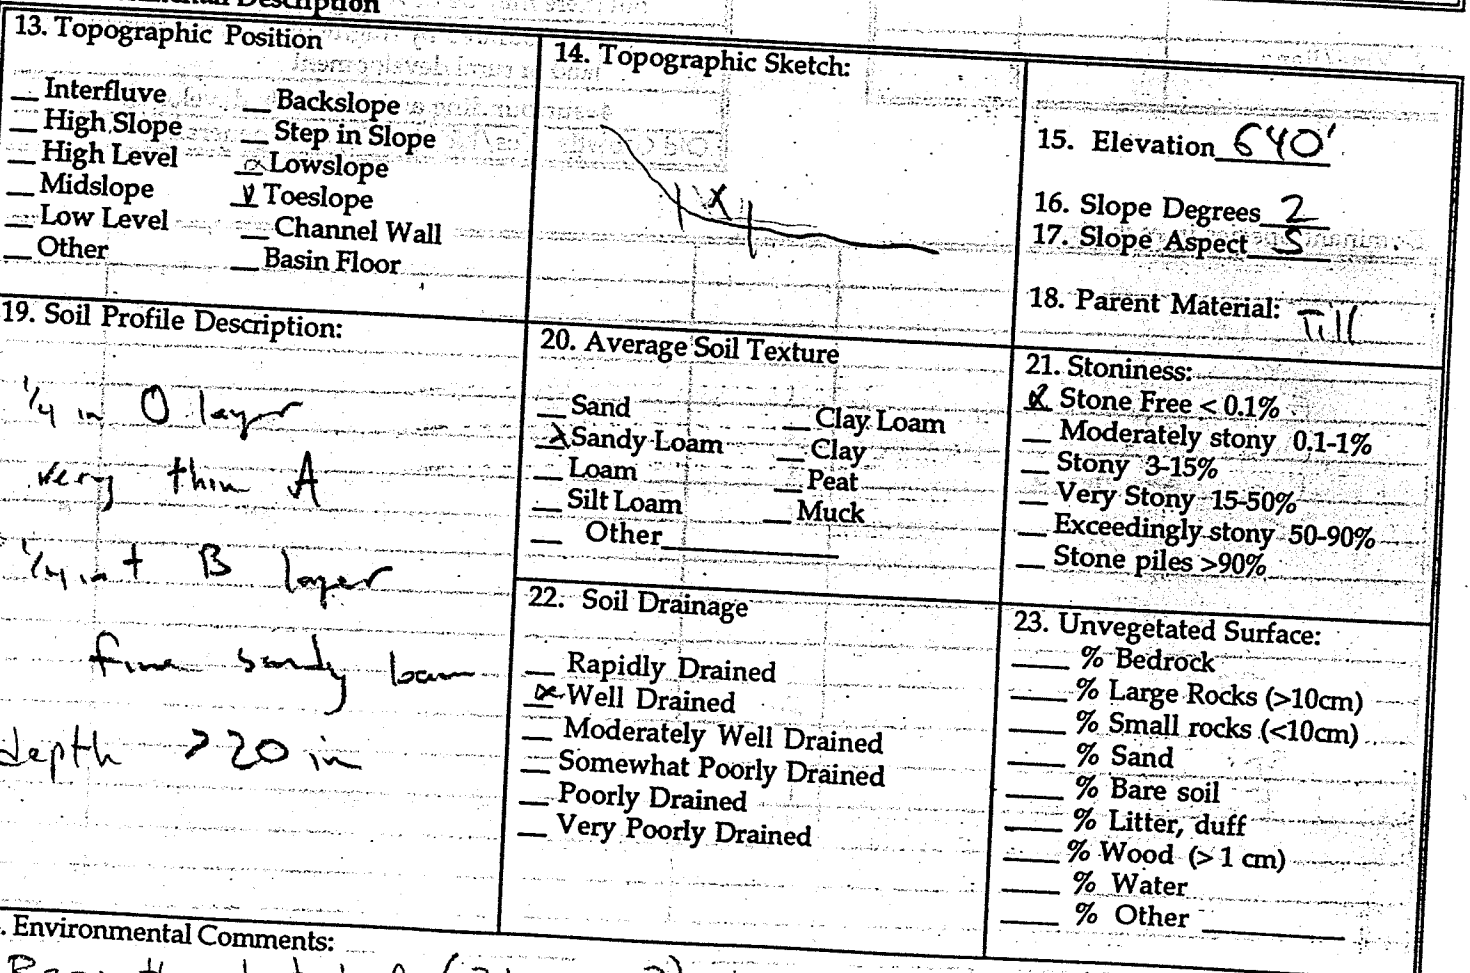 Description
13. Topographic Position
__ Interfluve __ Backslope
__ High Slope __ Step in Slope
__ High Level x Lowslope
__ Midslope Toeslope
__ Low Level __ Channel Wall
__ Other __ Basin Floor
14. Topographic Sketch:
X
15. Elevation 640'
16. Slope Degrees 2
17. Slope Aspect S
18. Parent Material: Till
19. Soil Profile Description:
1/4 in O layer
very thin A
1/4 in + B layer
fine sandy loam
depth >20 in
20. Average Soil Texture
__ Sand __ Clay Loam
X Sandy Loam __ Clay
__ Loam __ Peat
__ Silt Loam __ Muck
__ Other
21. Stoniness:
X Stone Free < 0.1%
__ Moderately stony 0.1-1%
__ Stony 3-15%
__ Very Stony 15-50%
__ Exceedingly stony 50-90%
__ Stone piles >90%
22. Soil Drainage
__ Rapidly Drained
x Well Drained
__ Moderately Well Drained
__ Somewhat Poorly Drained
__ Poorly Drained
__ Very Poorly Drained
23. Unvegetated Surface:
____ % Bedrock
____ % Large Rocks (>10cm)
____ % Small rocks (<10cm)
____ % Sand
____ % Bare soil
____ % Litter, duff
____ % Wood (> 1 cm)
____ % Water
____ % Other
. Environmental Comments: